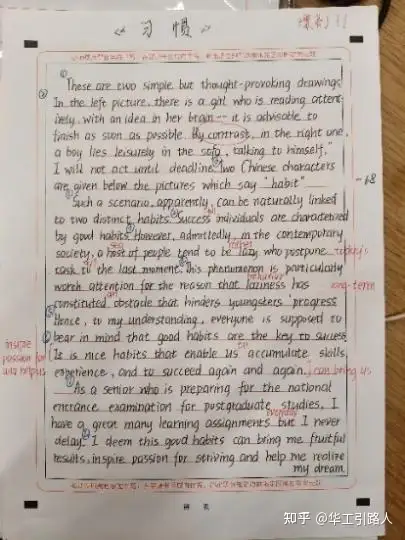 《习惯》
These are two simple but thought-provoking drawings.
In the left picture, there is a girl who is reading attent-
ively, with an idea in her brain -- it is advisable to
finish as soon as possible. By contrast, in the right one,
a boy lies leisurely in the sofa, talking to himself,"
I will not act until deadline." Two Chinese characters
are given below the pictures which say "habit"
Such a scenario, apparently, can be naturally linked
to two distinct habits. Success individuals are charactetized
by good habits. However, admittedly, in the contemporary
society, a host of people tend to be lazy who postpone today's
task to the last moment. This phenomenon is particularly
behavior
worth attention for the reason that laziness has long-term
constituted obstacle that hinders youngsters' progress
Hence, to my understanding, everyone is supposed to
bear in mind that good habits are the key to success
inspire
It is nice habits that enable us accumulate skills,
to
passion for
experience, and to succeed again and again. can bring us
and help us
As a senior who is preparing for the national
entrance examination for postgraduate studies, I
everyday
have a great many learning assignments but I never
delay. I deem this good habits can bring me fruitful
results, inspire passion for striving and help me realize
my dream.
知乎 @华工引路人